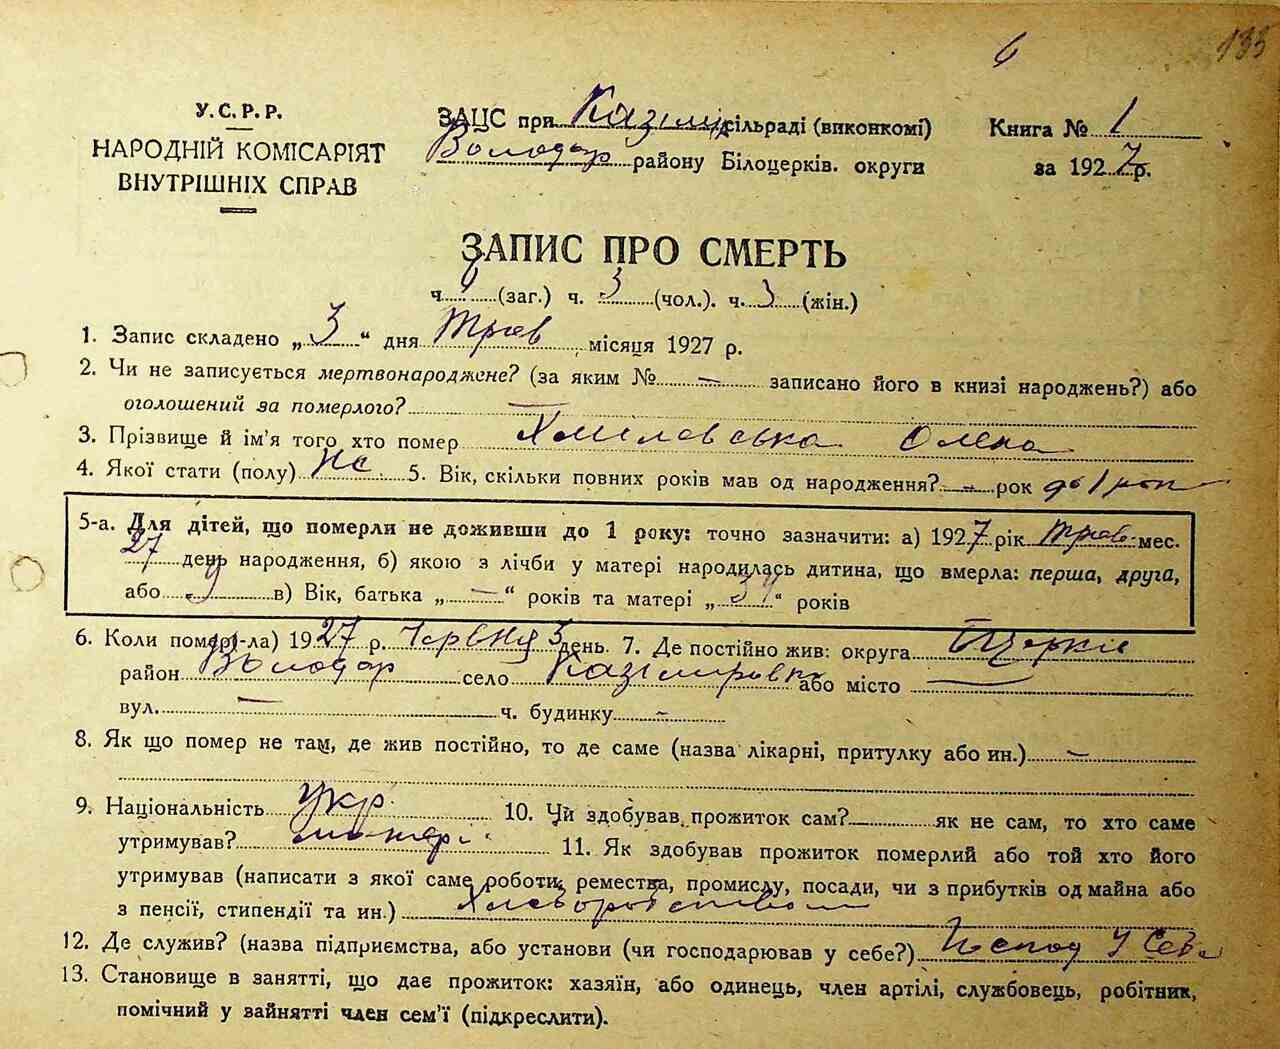 6 133
У.С.Р.Р.
НАРОДНІЙ КОМІСАРІЯТ
ВНУТРІШНІХ СПРАВ
ЗАЦС при Казімір сільраді (виконкомі)
Володар району Білоцерків. округи
Книга № 1
за 1927 р.
ЗАПИС ПРО СМЕРТЬ
ч. 6 (заг.) ч. 3 (чол.). ч. 3 (жін.)
1. Запис складено „ 3 “ дня Трав місяця 1927 р.
2. Чи не записується мертвонароджене? (за яким № — записано його в книзі народжень?) або
оголошений за померлого? —
3. Прізвище й ім'я того хто помер Хмілевська Олена
4. Якої стати (полу) Жс 5. Вік, скільки повних років мав од народження? — рок до 1 рок
5-а. Для дітей, що померли не доживши до 1 року: точно зазначити: а) 1927 рік Трав мес.
27 день народження, б) якою з лічби у матері народилась дитина, що вмерла: перша, друга,
або в) Вік, батька „ — “ років та матері „ “ років
6. Коли помер(-ла) 1927 р. Червня 3 день. 7. Де постійно жив: округа БЦеркiв
район Володар село Казіміровка або місто —
вул. — ч. будинку —
8. Як що помер не там, де жив постійно, то де саме (назва лікарні, притулку або ин.) —
9. Національність Укр. 10. Чи здобував прожиток сам? як не сам, то хто саме
утримував? матері 11. Як здобував прожиток померлий або той хто його
утримував (написати з якої саме роботи, ремества, промислу, посади, чи з прибутків од майна або
з пенсії, стипендії та ин.) Хлеборобством
12. Де служив? (назва підприємства, або установи (чи господарював у себе?) Господ у Себе
13. Становище в занятті, що дає прожиток: хазяїн, або одинець, член артілі, службовець, робітник,
помічний у вайнятті член сем'ї (підкреслити).